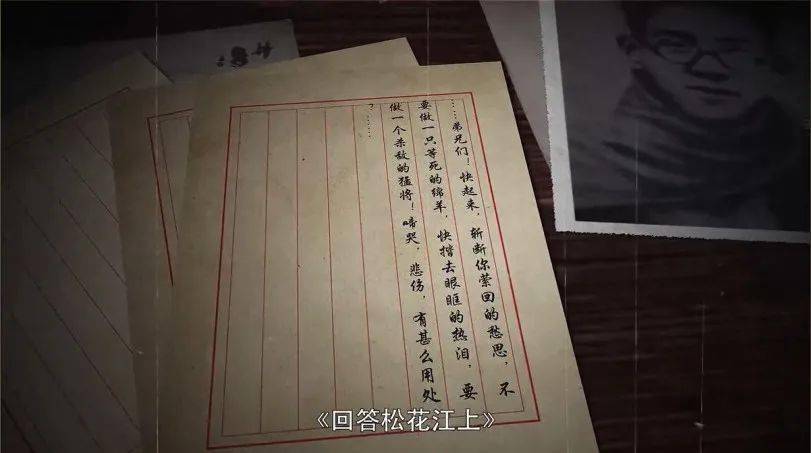 ……弟兄们！快起来，斩断你萦回的愁思，不
要做一只等死的绵羊，快揩去眼眶的热泪，要
做一个杀敌的猛将！啼哭，悲伤，有甚么用处
？……
《回答松花江上》